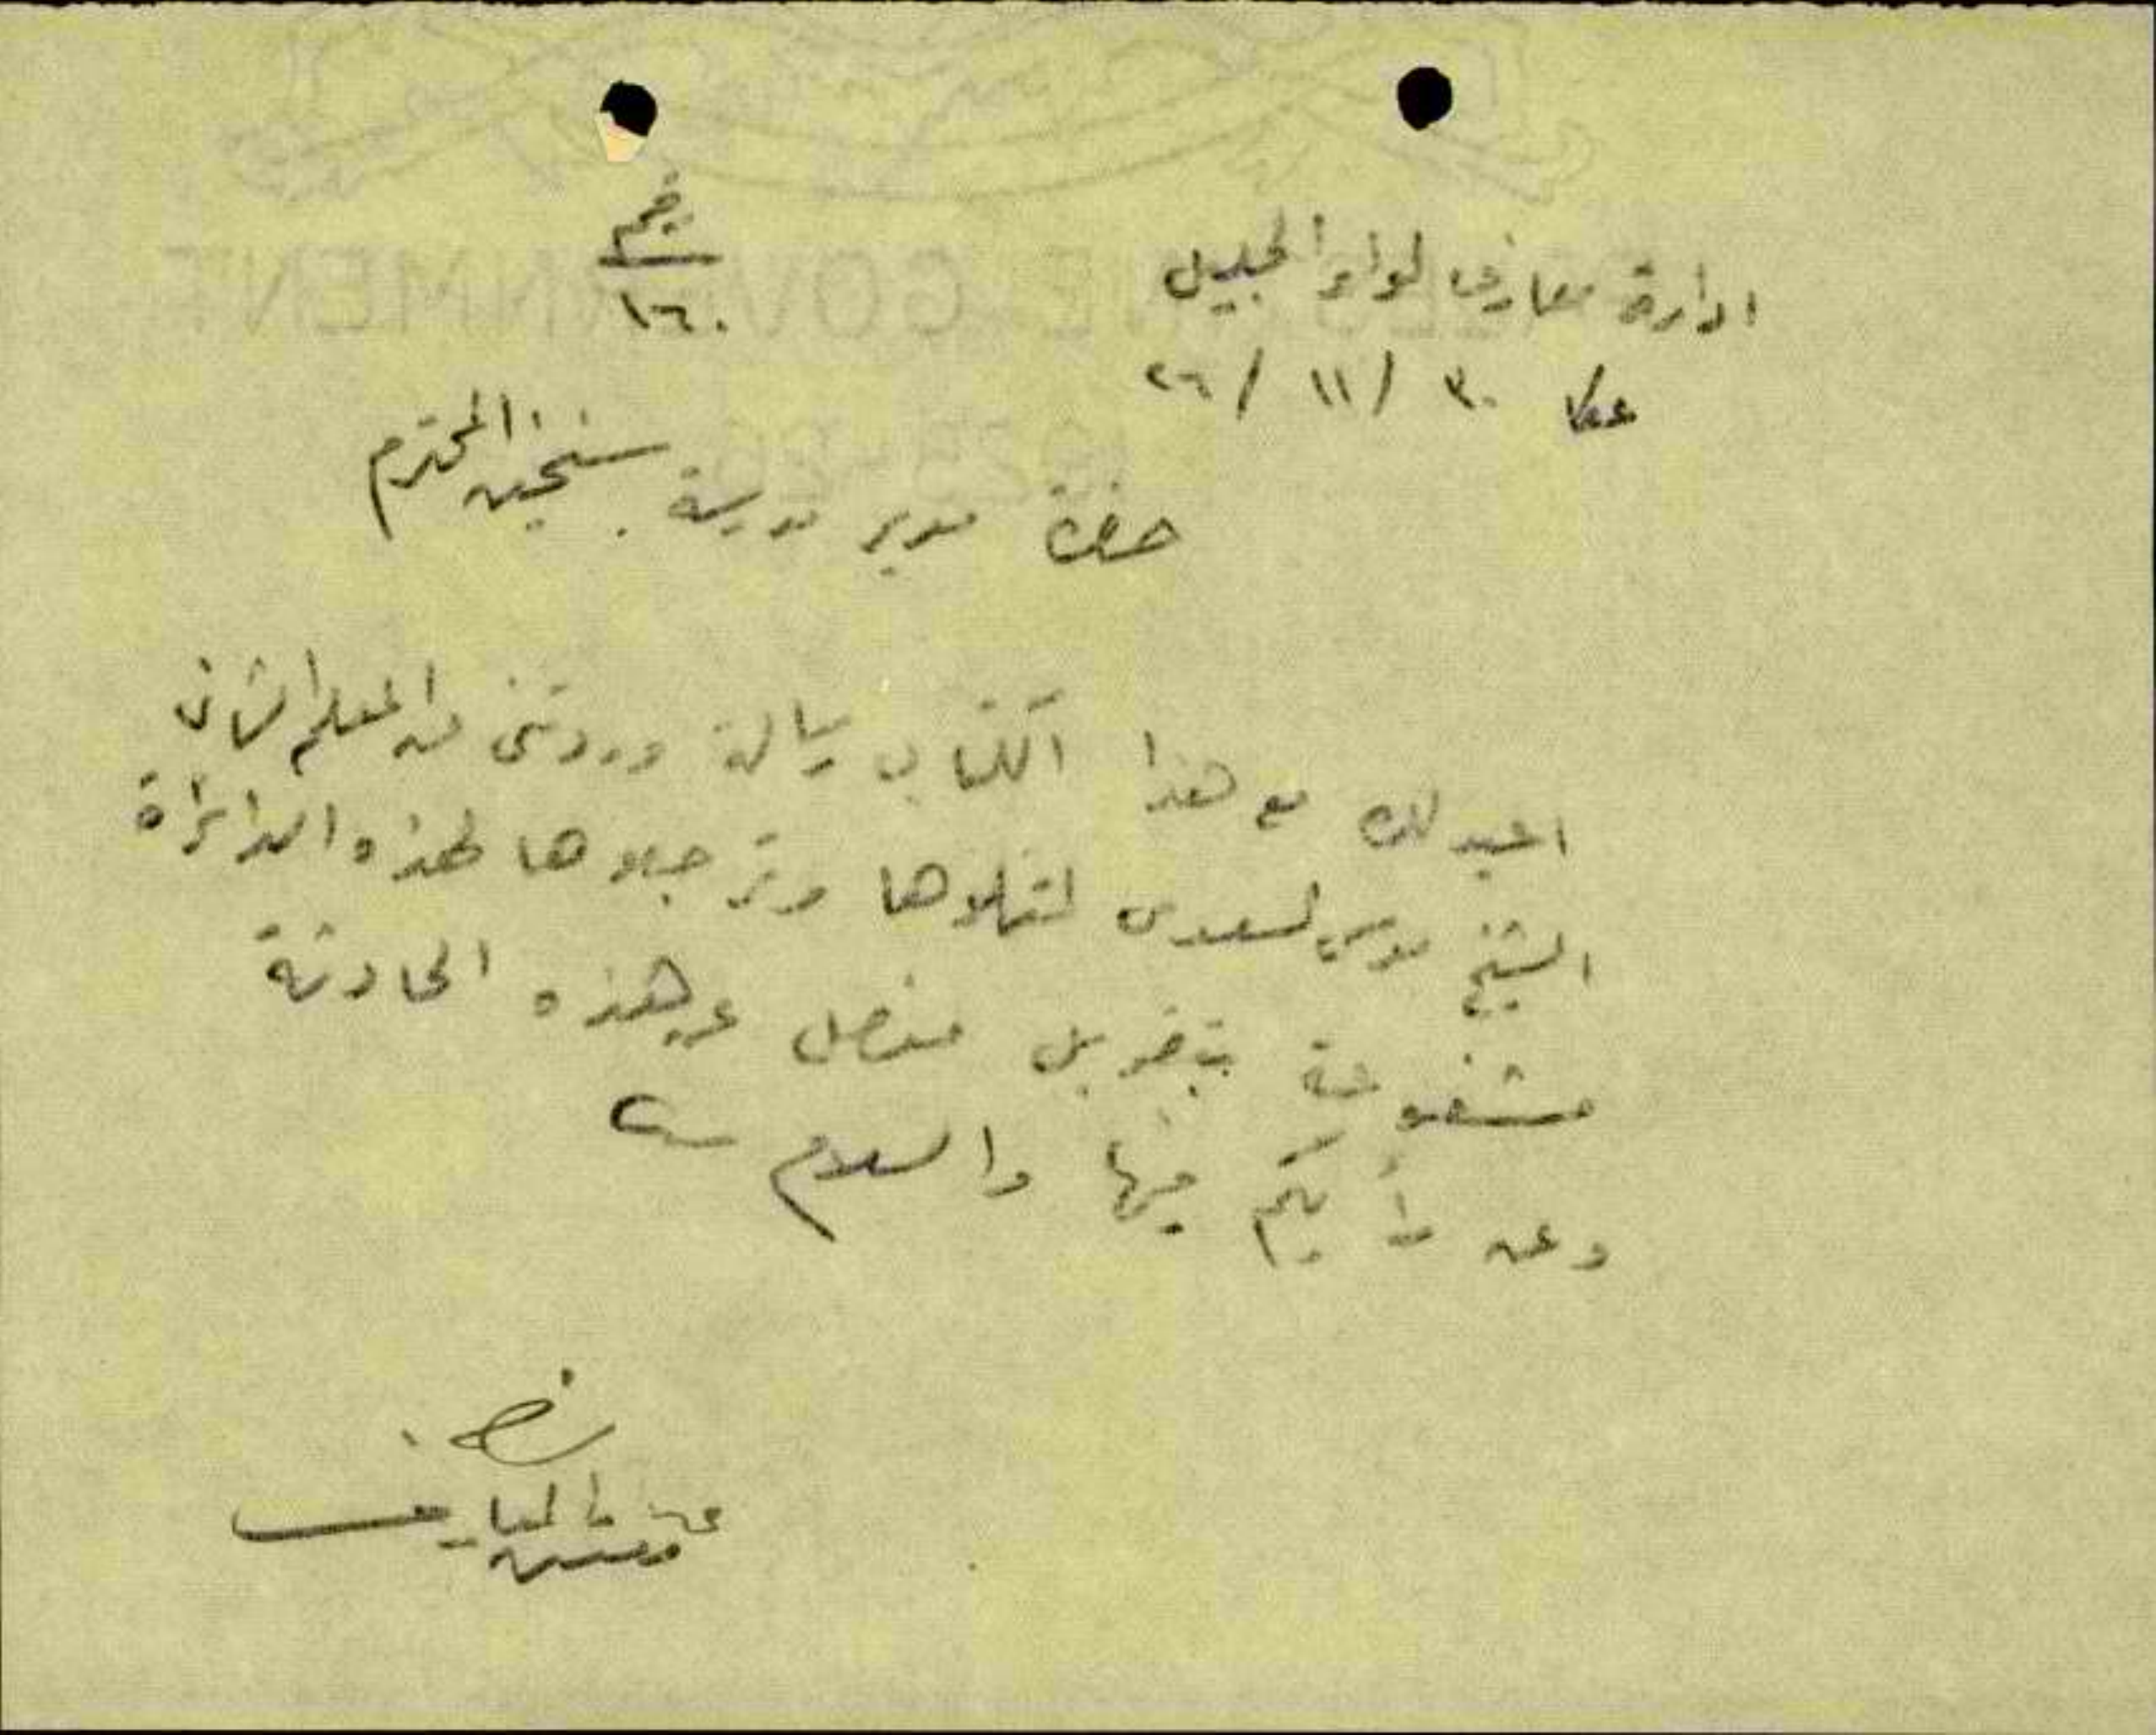 ادارة معارف لواء الجليل
رقم
١٦٠
عكا ٣٠ / ١١ / ٢٦
حضرة مدير مدرسة سخنين المحترم
اعيد لكم مع هذا الكتاب رسالة وردتني من المعلم الثاني
الشيخ موسى السعدي لتتلوها وترجعوها لهذه الدائرة
مشفوعة بتقرير مفصل عن هذه الحادثة
وعن رأيكم فيها والسلام
مفتش المعارف